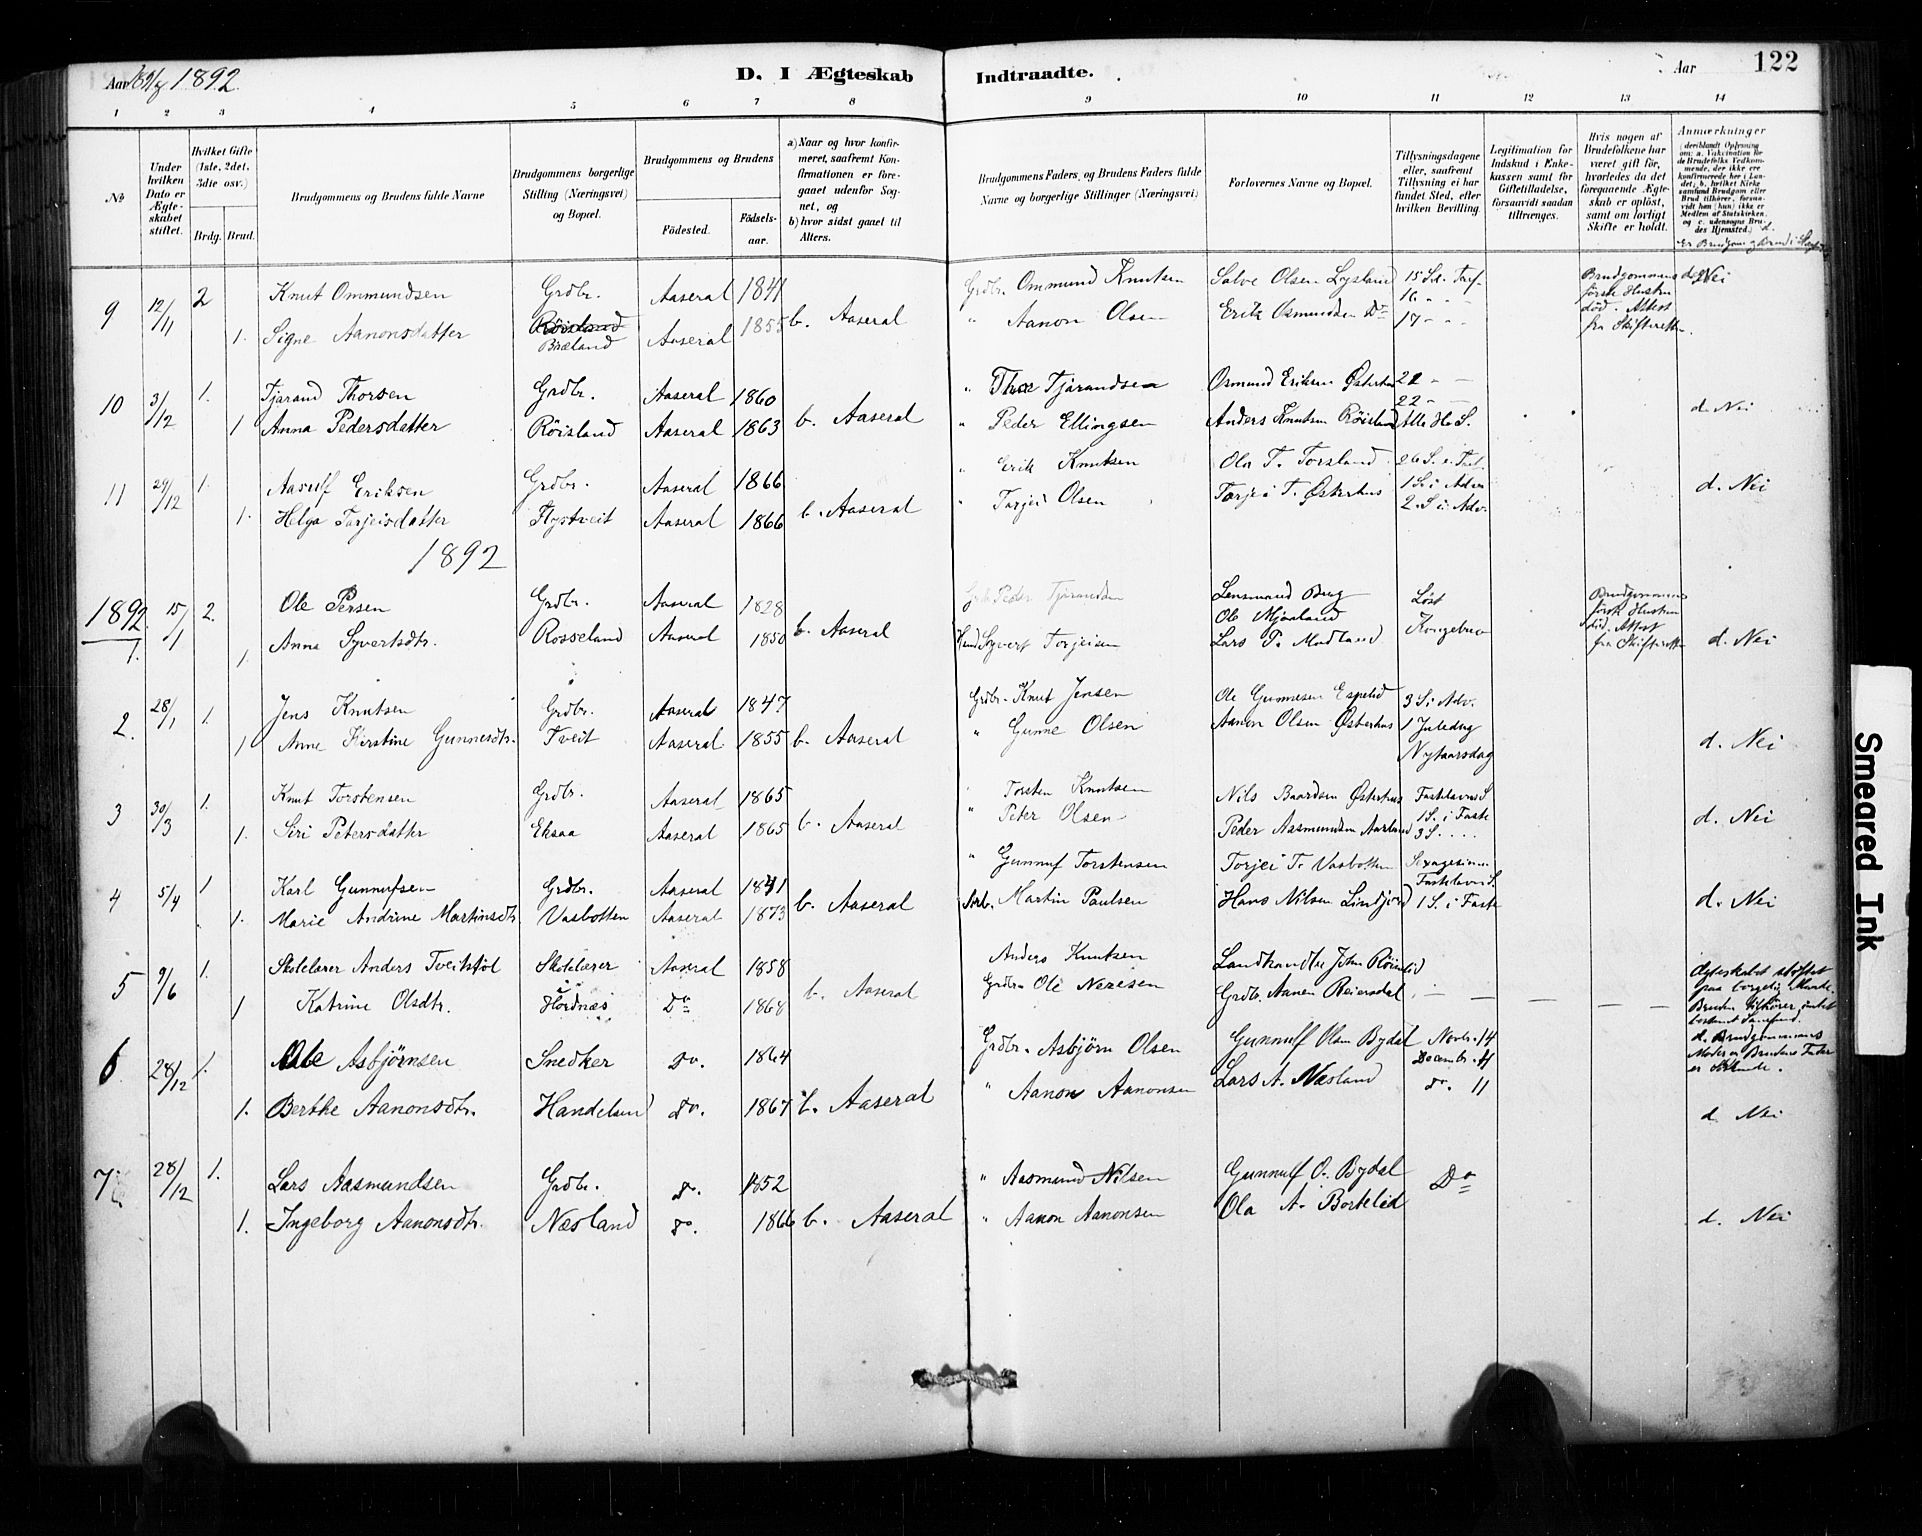 Aar 1891/ 1892.
D. I Ægteskab Indtraadte.
Aar 122
1 2 3 4 5 6 7 8 9 10 11 12 13 14
No.
Under hvilken Dato er Ægteskabet stiftet.
Hvilket Gifte (1ste, 2det, 3die osv.)
Brdg. Brud.
Brudgommens og Brudens fulde Navne
Brudgommens borgerlige Stilling (Næringsvei) og Bopæl.
Brudgommens og Brudens
Födested. Födselsaar.
a) Naar og hvor konfirmeret, saafremt Konfirmationen er foregaaet udenfor Sognet, og
b) hvor sidst gaaet til Alters.
Brudgommens Faders, og Brudens Faders fulde Navne og borgerlige Stillinger (Næringsvei)
Forlovernes Navne og Bopæl.
Tillysningsdagene eller, saafremt Tillysning ei har fundet Sted, efter hvilken Bevilling.
Legitimation for Indskud i Enkekassen samt for Giftetilladelse, forsaavidt saadan tiltrænges.
Hvis nogen af Brudefolkene har været gift før, hvorledes da det foregaaende Ægteskab er oplöst, samt om lovligt Skifte er holdt.
Anmærkninger (deriblandt Oplysning om: a. Vaksination for de Brudefolks Vedkommende, der ikke ere konfirmerede her i Landet; b. hvilket Kirkesamfund Brudgom eller Brud tilhörer, forsaavidt han (hun) ikke er Medlem af Statskirken, og c. udensogns Brudes Hjemsted.) d.
9 12/11 2 Knut Ommundsen Grdbr. Aaseral 1841 Grdbr. Ommund Knutsen Salve Olsen Logsland 15 S. e. Tref. Brudgommens første Hustru død. Attest fra Skifteretten. d. Nei
1. Signe Aanonsdatter Røisland Bræland Aaseral 1855 b. Aaseral " Aanon Olsen Erik Osmundsen Do 16 - - 17 - -
10 3/12 1. Tjärand Thorsen Grdbr. Aaseral 1860 " Thore Tjärandsen Osmund Eriksen Østerhus 21 - -
1 Anna Pedersdatter Røisland Aaseral 1863 b. Aaseral " Peder Ellingsen Anders Knutsen Røisland 22 - - Alle H. S. d. Nei
11 29/12 1. Aasulf Eriksen Grdbr. Aaseral 1866 " Erik Knutsen Ola T. Torsland 26 S. e. Tref.
1. Helga Tarjeisdatter Flystveit Aaseral 1866 b. Aaseral " Tarjei Olsen Tarjei T. Østerhus 1 S. i Adv. 2. S. i Adv. d. Nei
1892
1892. 1. 15/1 2. Ole Persen Grdbr. Aaseral 1828 Peder Tjärandsen Lensmand Bug Ole Mjaaland Løst Brudgommens første Hustru død. Attest fra Skifteretten
1. Anna Syvertsdtr. Rosseland Aaseral 1850 b. Aaseral Syvert Torjeisen Lars P. Modland Kongebrev d. Nei
2. 28/1 1. Jens Knutsen Grdbr. Aaseral 1847 Grdbr. Knut Jensen Ole Gunnesen Espelid 3 S. i Adv.
1 Anne Kirstine Gunnesdtr. Tveit Aaseral 1855 b. Aaseral " Gunne Olsen Aanon Olsen Østerhus 1 Juledag Nytaarsdag d. Nei
3 30/3 1. Knut Torstensen Grdbr. Aaseral 1865 " Torsten Knutsen Nils Baardsen Østerhus Fastelavns S.
1. Siri Petersdatter Eksaa Aaseral 1865 b. Aaseral " Peter Olsen Peder Aasmundsen 1 S. i Faste 3 S. . . . d. Nei
4 5/4 1 Karl Gunnufsen Grdbr. Aaseral 1841 " Gunnuf Torstensen Torjei T. Vasbotten Sexagesima
1. Marie Andrine Martinsdtr Vasbotten Aaseral 1873 b. Aaseral Arb. Martin Paulsen Hans Nilsen Lindjord Fastelavns S. 1 S. i Faste d. Nei
5 9/6 1. Skolelærer Anders Tveitstøl Skolelærer Aaseral 1858 Anders Knutsen Landhandler John Røinlid Ægteskabet stiftet paa borgerlig Maade.
1 Katrine Olsdtr. Hordnæs Do 1868 b. Aaseral Grdbr. Ole Nezesen Grdbr. Aanen Reiersdal — — — — Bruden tilhører intet bestemt Samfund. d. Brudgommens Moder og Brudens Fader er Søskende.
6 28/12 1. Ole Asbjørnsen Snedker Do. 1864 Grdbr. Asbjørn Olsen Gunnulf Olsen Bydal Novbr. 14
1. Berthe Aanonsdtr. Handeland Do. 1867 b. Aaseral " Aanon Aanonsen Lars A. Næsland Decembr. 4 Do. 11 d. Nei
7 28/12 1. Lars Aasmundsen Grdbr. Do. 1852 " Aasmund Nilsen Gunnulf O. Bydal Do
1. Ingeborg Aanonsdtr. Næsland Do. 1866 b. Aaseral " Aanon Aanonsen Ola A. Bortelid d. Nei
Smeared Ink